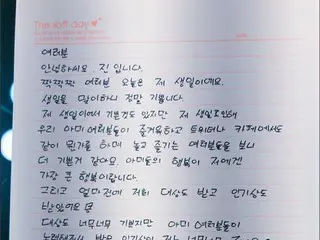 The soft day
여러분
안녕하세요. 진 입니다.
짝짝짝 여러분 오늘은 제 생일이에요.
생일을 맞이하니 정말 기쁩니다.
제 생일이여서 기쁜것도 있지만 제 생일로인해
우리 아미 여러분들이 즐거워하고 트위터나 카페에서도
같이 뭔가를 하며 놀고 즐기는 여러분들을 보니
더 기쁜거 같아요. 아미들의 행복이 저에겐
가장 큰 행복이랍니다.
그리고 얼마전에 저희 대상도 받고 인기상도
받았어요
대상도 너무너무 기쁘지만 아미 여러분들이